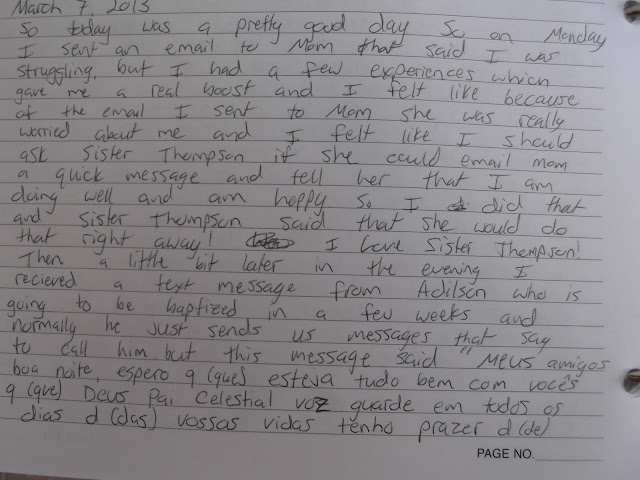 March 7, 2013
So today was a pretty good day So on Monday
I sent an email to Mom that said I was
struggling, but I had a few experiences which
gave me a real boost and I felt like because
of the email I sent to Mom she was really
worried about me and I felt like I should
ask Sister Thompson if she could email mom
a quick message and tell her that I am
doing well and am happy so I did that
and Sister Thompson said that she would do
that right away! I love Sister Thompson!
Then a little bit later in the evening I
recieved a text message from Adilson who is
going to be baptized in a few weeks and
normally he just sends us messages that say
to call him but this message said "Meus amigos
boa noite, espero q (que) esteja tudo bem com vocês
q (que) Deus Pai Celestial voz guarde em todos os
dias d (das) vossas vidas tenho prazer d (de)
PAGE NO.